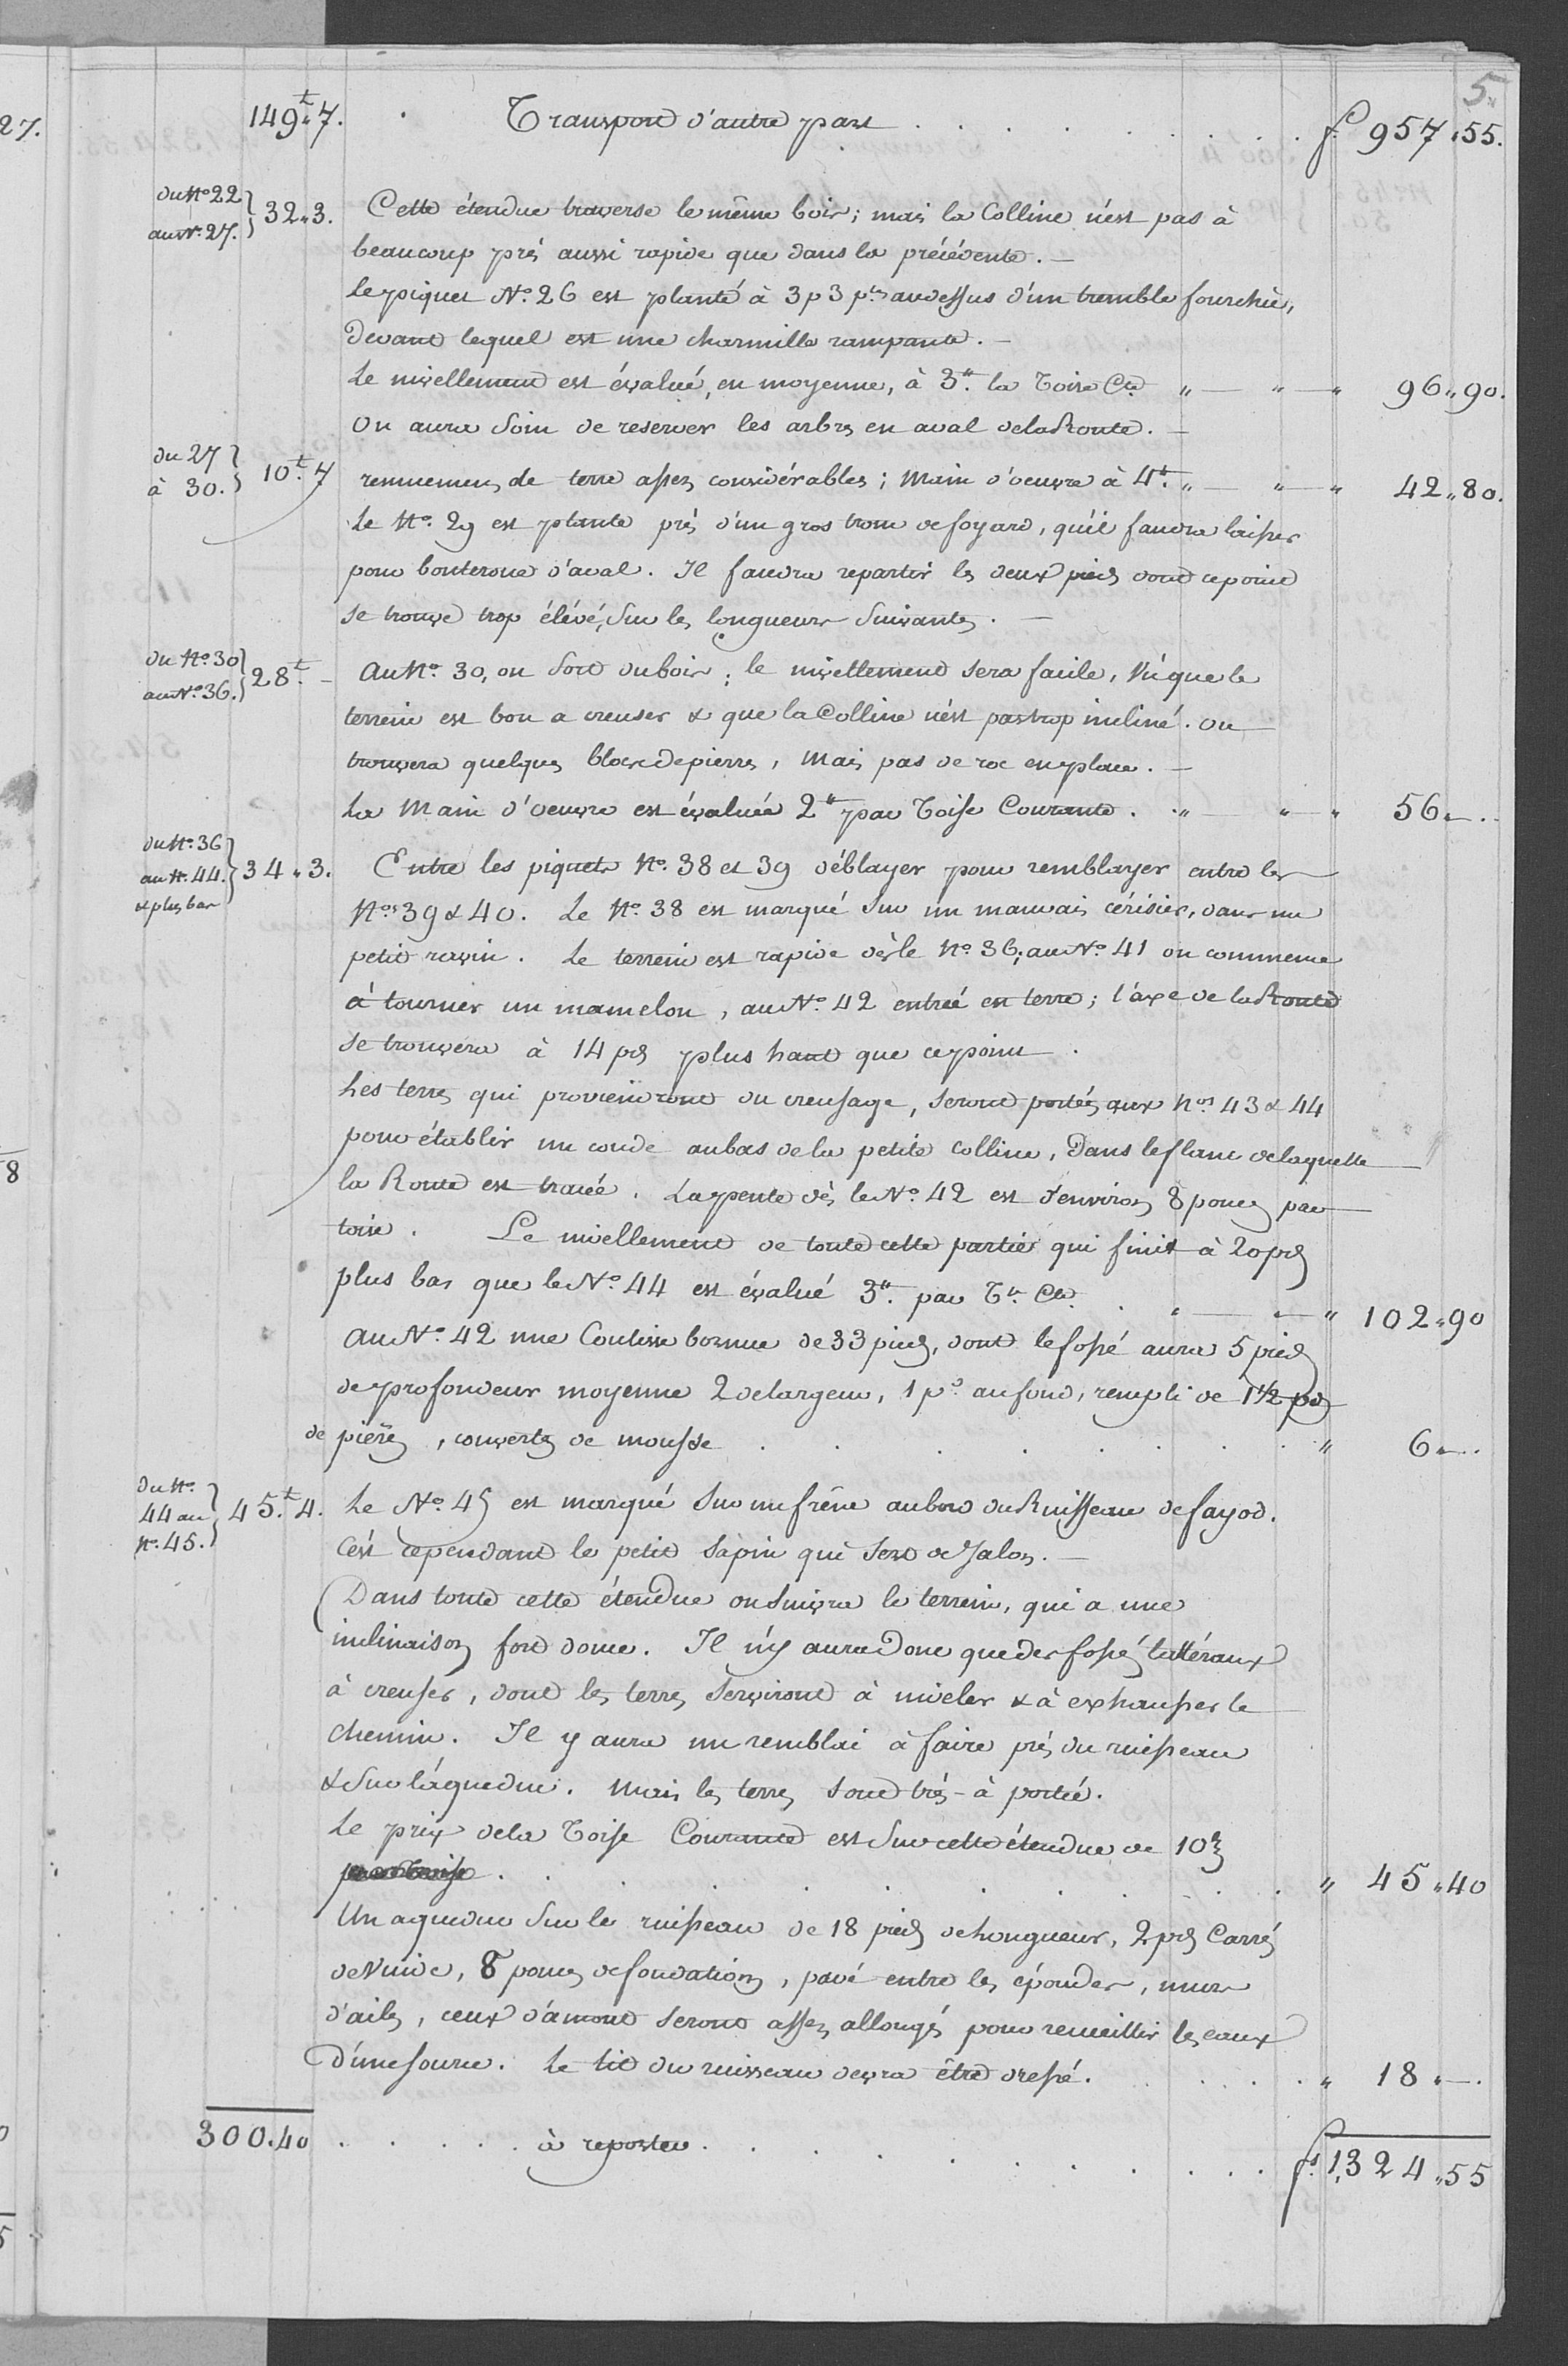 5.
27.
149.t 7. Transport d'autre part . . . . . . . . f. 957 „ 55.
du N.o 22 au N.o 27. } 32 „ 3. Cette étendue traverse le même bois; mais la Colline n'est pas à
beaucoup près aussi rapide que dans la précédente. —
Le piquet N.o 26 est planté à 3 p 3 p.ces au dessus d'un tremble fourchu,
devant lequel est une charmille rampante. —
Le nivellement est évalué, en moyenne, à 3.tt la Toise C.te „ — „ — „ 96 „ 90.
On aura soin de reserver les arbres en aval de la Route. —
du 27 à 30. } 10.t 7 remuemens de terre assez considérables; Main d'oeuvre à 4.tt „ — „ — „ 42 „ 80.
Le N.o 29 est planté près d'un gros tronc de foyard, qu'il faudra laisser
pour bouteroue d'aval. Il faudra repartir les deux pieds dont ce point
se trouve trop élévé, sur les longueurs suivantes. —
du N.o 30 au N.o 36. } 28.t — Au N.o 30, on sort du bois; le nivellement sera facile, vû que le
terrein est bon a creuser & que la Colline n'est pas trop incliné. on
trouvera quelques blocs de pierres, mais pas de roc en place. —
La Main d'oeuvre est évaluée 2.tt par Toise Courante. „ — „ „ 56 „ — .
du N.o 36 au N. 44. & plus bas } 34 „ 3. Entre les piquets N.o 38 et 39 déblayer pour remblayer entre les
N.os 39 & 40. Le N.o 38 est marqué sur un mauvais cérisier, dans un
petit ravin. Le terrein est rapide dès le N.o 36; au N.o 41 on commence
à tourner un mamelon, au N.o 42 entrée en terre; l'axe de la Route
se trouvera à 14 pds plus haut que ce point.
Les terres qui proviendront du creusage, seront portées aux N.os 43 & 44
pour établir un coude au bas de la petite colline, dans le flanc de laquelle
la Route est tracée. La pente dès le N.o 42 est d'environ 8 pouces par
toise. Le nivellement de toute cette partie qui finit à 20 pds
plus bas que le N.o 44 est évalué 3.tt par T.e C.te . „ — „ — „ 102 „ 90
Au N.o 42 une Coulisse bornue de 33 pieds, dont le fossé aura 5 pieds
de profondeur moyenne 2 de largeur, 1 p.d au fond, rempli de 1 1/2 pds
de pières, couvertes de mousse . . . . . . . „ 6 „ — .
du N.o 44 au N.o 45. } 45.t 4. Le N.o 45 est marqué sur un frêne au bord du Ruisseau de fayod.
C'est cependant le petit sapin qui sert de Jalon. —
Dans toute cette étendue on suivra le terrein, qui a une
inclinaison fort douce. Il n'y aura donc que des fossés lattéraux
à creuser, dont les terres serviront à niveler & à exhausser le
chemin. Il y aura un remblai à faire près du ruisseau
& sur l'aqueduc. Mais les terres sont très-à portée.
Le prix de la Toise Courante est sur cette étendue de 10 bz
par toise . . . . . . . . . . „ 45 „ 40
Un aqueduc sur le ruisseau de 18 pieds de longueur, 2 pds Carrés
de vuide, 8 pouces de fondations, pavé entre les épondes, murs
d'ailes, ceux d'amont seront assez allongés pour recueillir les eaux
d'une source. Le lit du ruisseau devra être dressé. . . . . „ 18 „ — .
300.40 . . . . . à reporter . . . . . . . . . fs. 1,324 „ 55